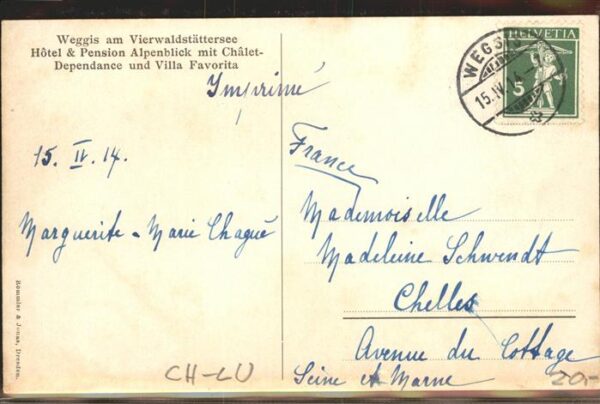 Weggis am Vierwaldstättersee
Hôtel & Pension Alpenblick mit Châlet-
Dependance und Villa Favorita
Imprimé
15. IV. 14.
Marguerite - Marie Chagué
Rommler & Jonas, Dresden.
CH-LU
HELVETIA
5
WEGGIS
15.IV.14
France
Mademoiselle
Madeleine Schwendt
Chelles
Avenue du Cottage
Seine et Marne
20.-